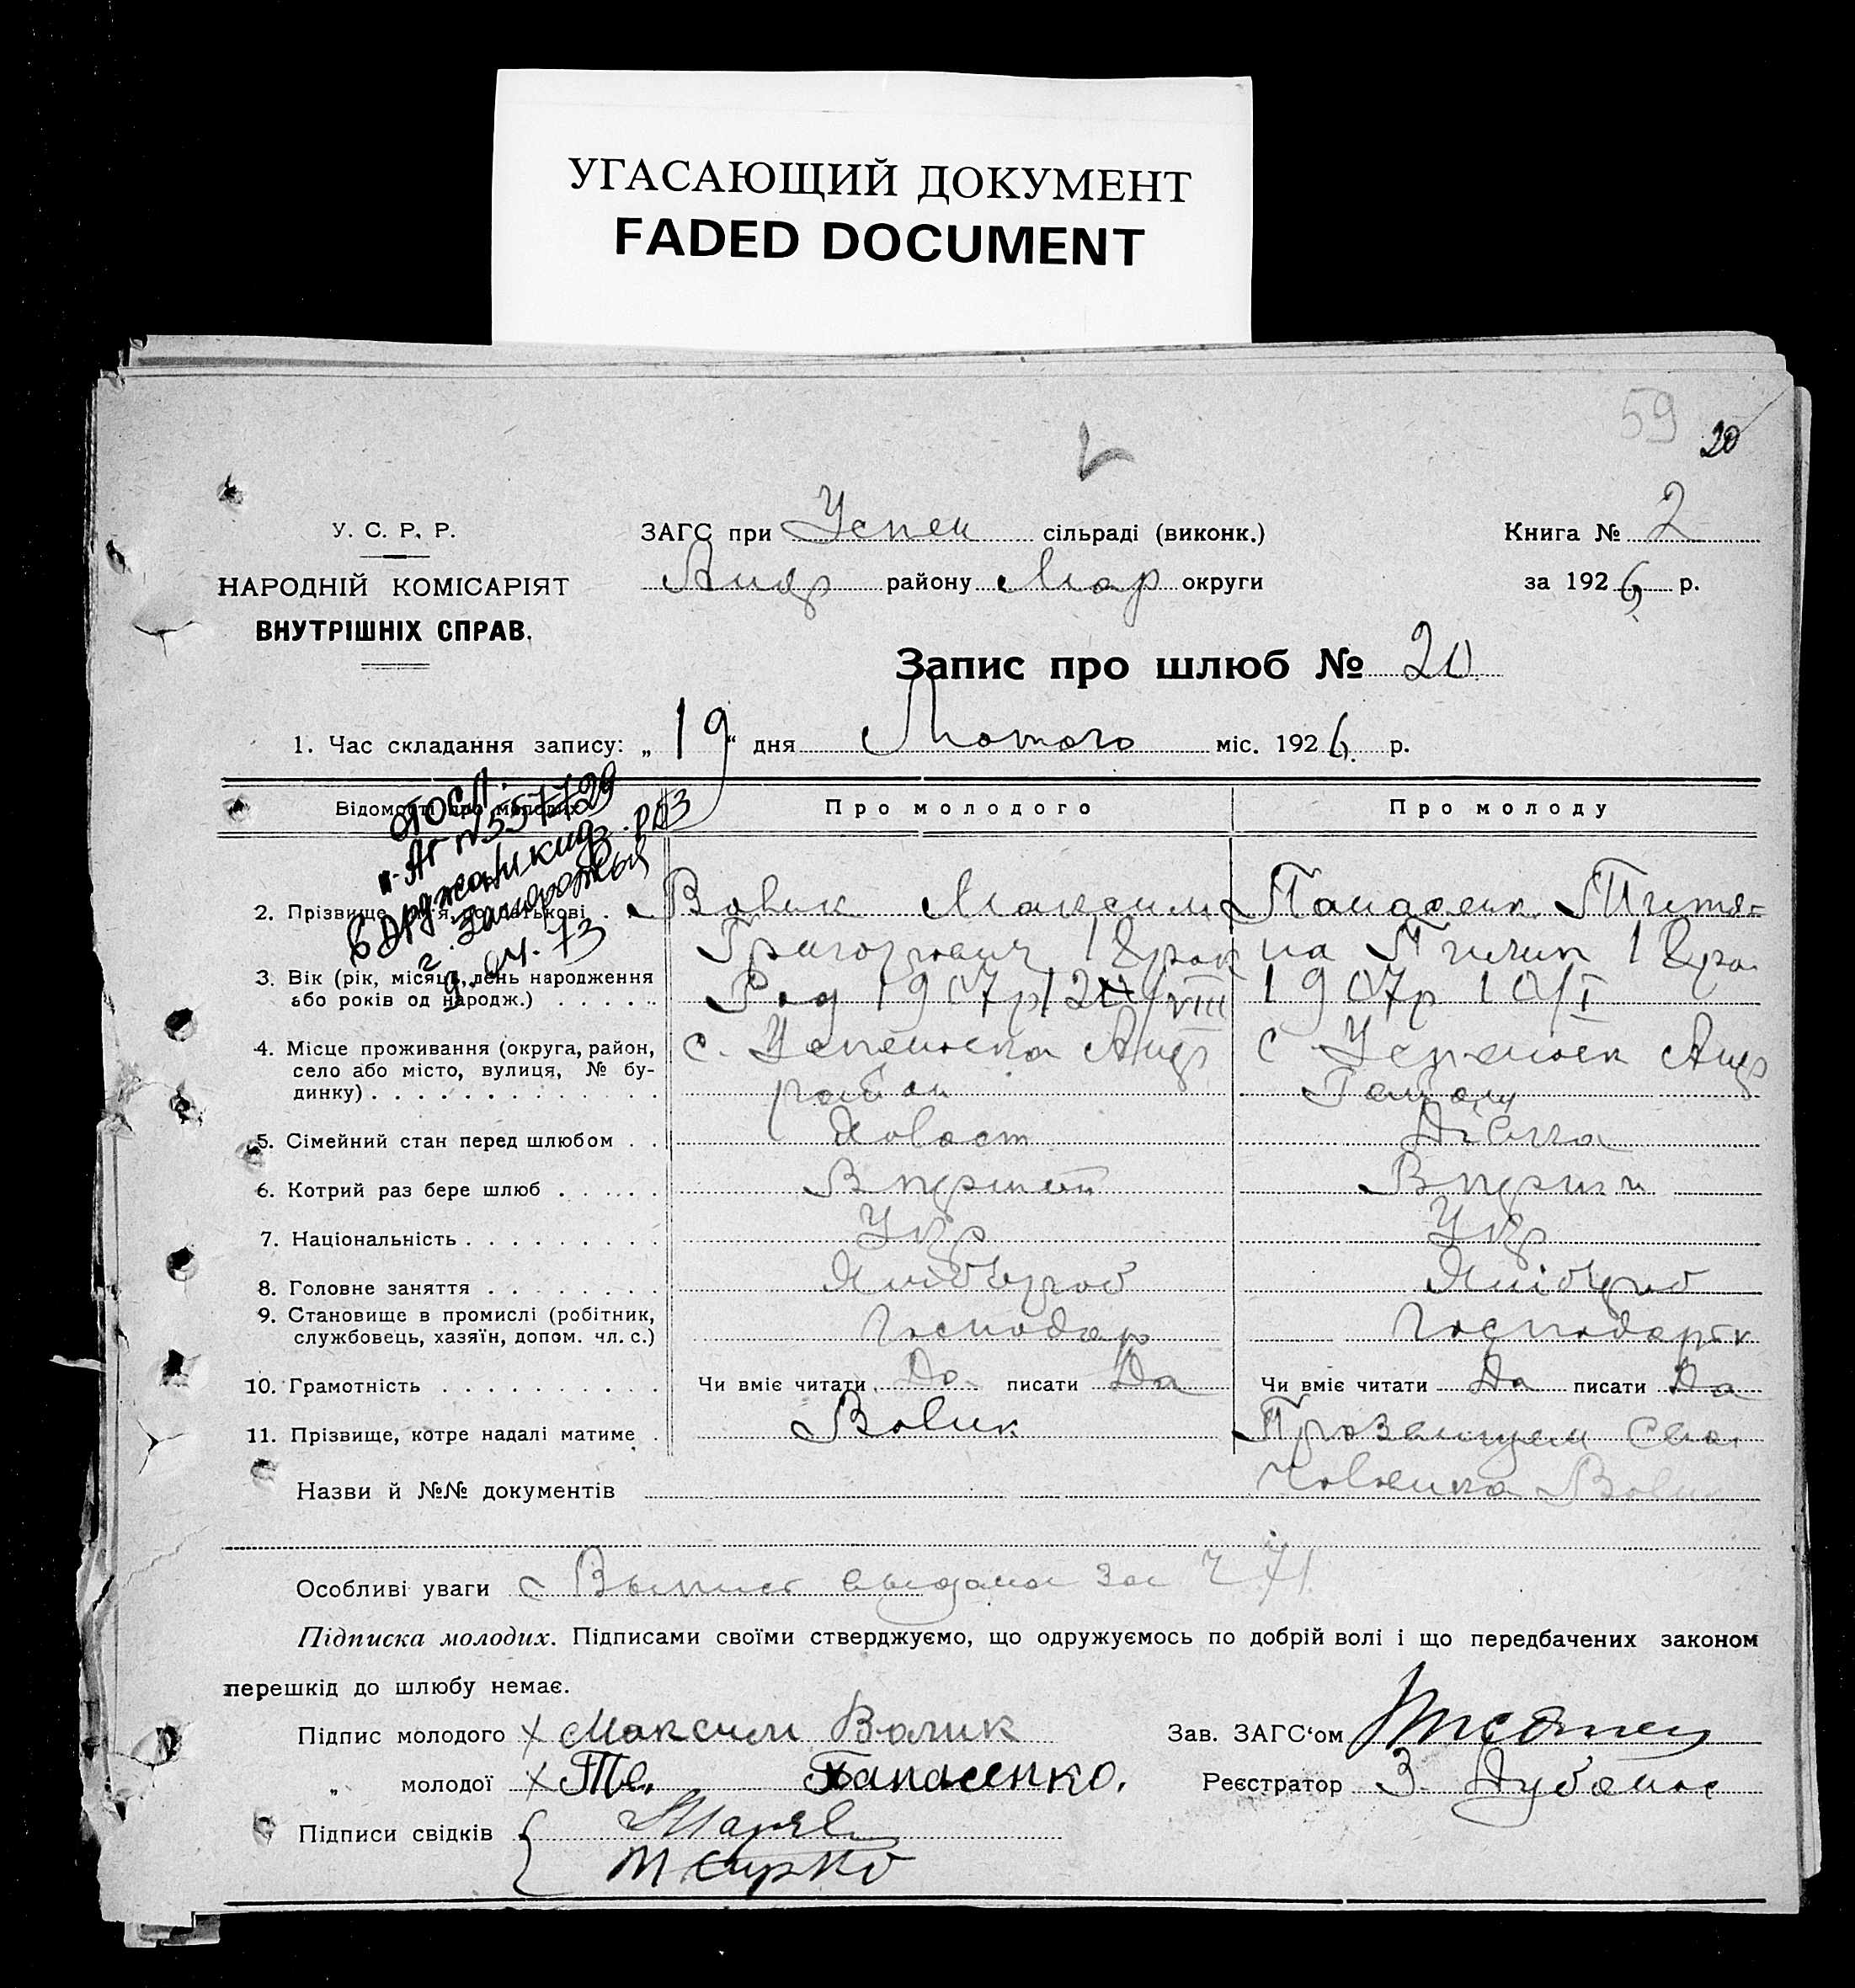 УГАСАЮЩИЙ ДОКУМЕНТ
FADED DOCUMENT
59
20
У. С. Р. Р.
НАРОДНІЙ КОМІСАРІЯТ
ВНУТРІШНІХ СПРАВ.
ЗАГС при Успен сільраді (виконк.)
Андр району Мар округи
Книга № 2
за 1926 р.
Запис про шлюб № 20
1. Час складання запису: „19“ дня Лютого міс. 1926 р.
Відомості про молодих
Про молодого
Про молоду
2. Прізвище, ім'я, по батькові
Вовик Максим
Григорович 18 рок
Панасенк
на Пилип 18 ро
3. Вік (рік, місяць, день народження
або років од народж.)
1907р
VIII
1907р 10/I
4. Місце проживання (округа, район,
село або місто, вулиця, № бу-
динку)
с. Успеновка Андр
район
с Успеновк Андр
5. Сімейний стан перед шлюбом
Дівчина
6. Котрий раз бере шлюб
Вперший
7. Національність
Укр
Укр
8. Головне заняття
Хлібороб
Хлібороб
9. Становище в промислі (робітник,
службовець, хазяїн, допом. чл. с.)
Господар
10. Грамотність
Чи вміє читати Да писати Да
Чи вміє читати Да писати Да
11. Прізвище, котре надалі матиме
Вовик
Прозвищем сво
чоловика Вовик
Назви й №№ документів
Особливі уваги Выпись выдана за
Підписка молодих. Підписами своїми стверджуємо, що одружуємось по добрій волі і що передбачених законом
перешкід до шлюбу немає.
Підпис молодого х Максим Вовик
„ молодої х Те. Панасенко.
Зав. ЗАГС‘ом
Реєстратор З.
Підписи свідків